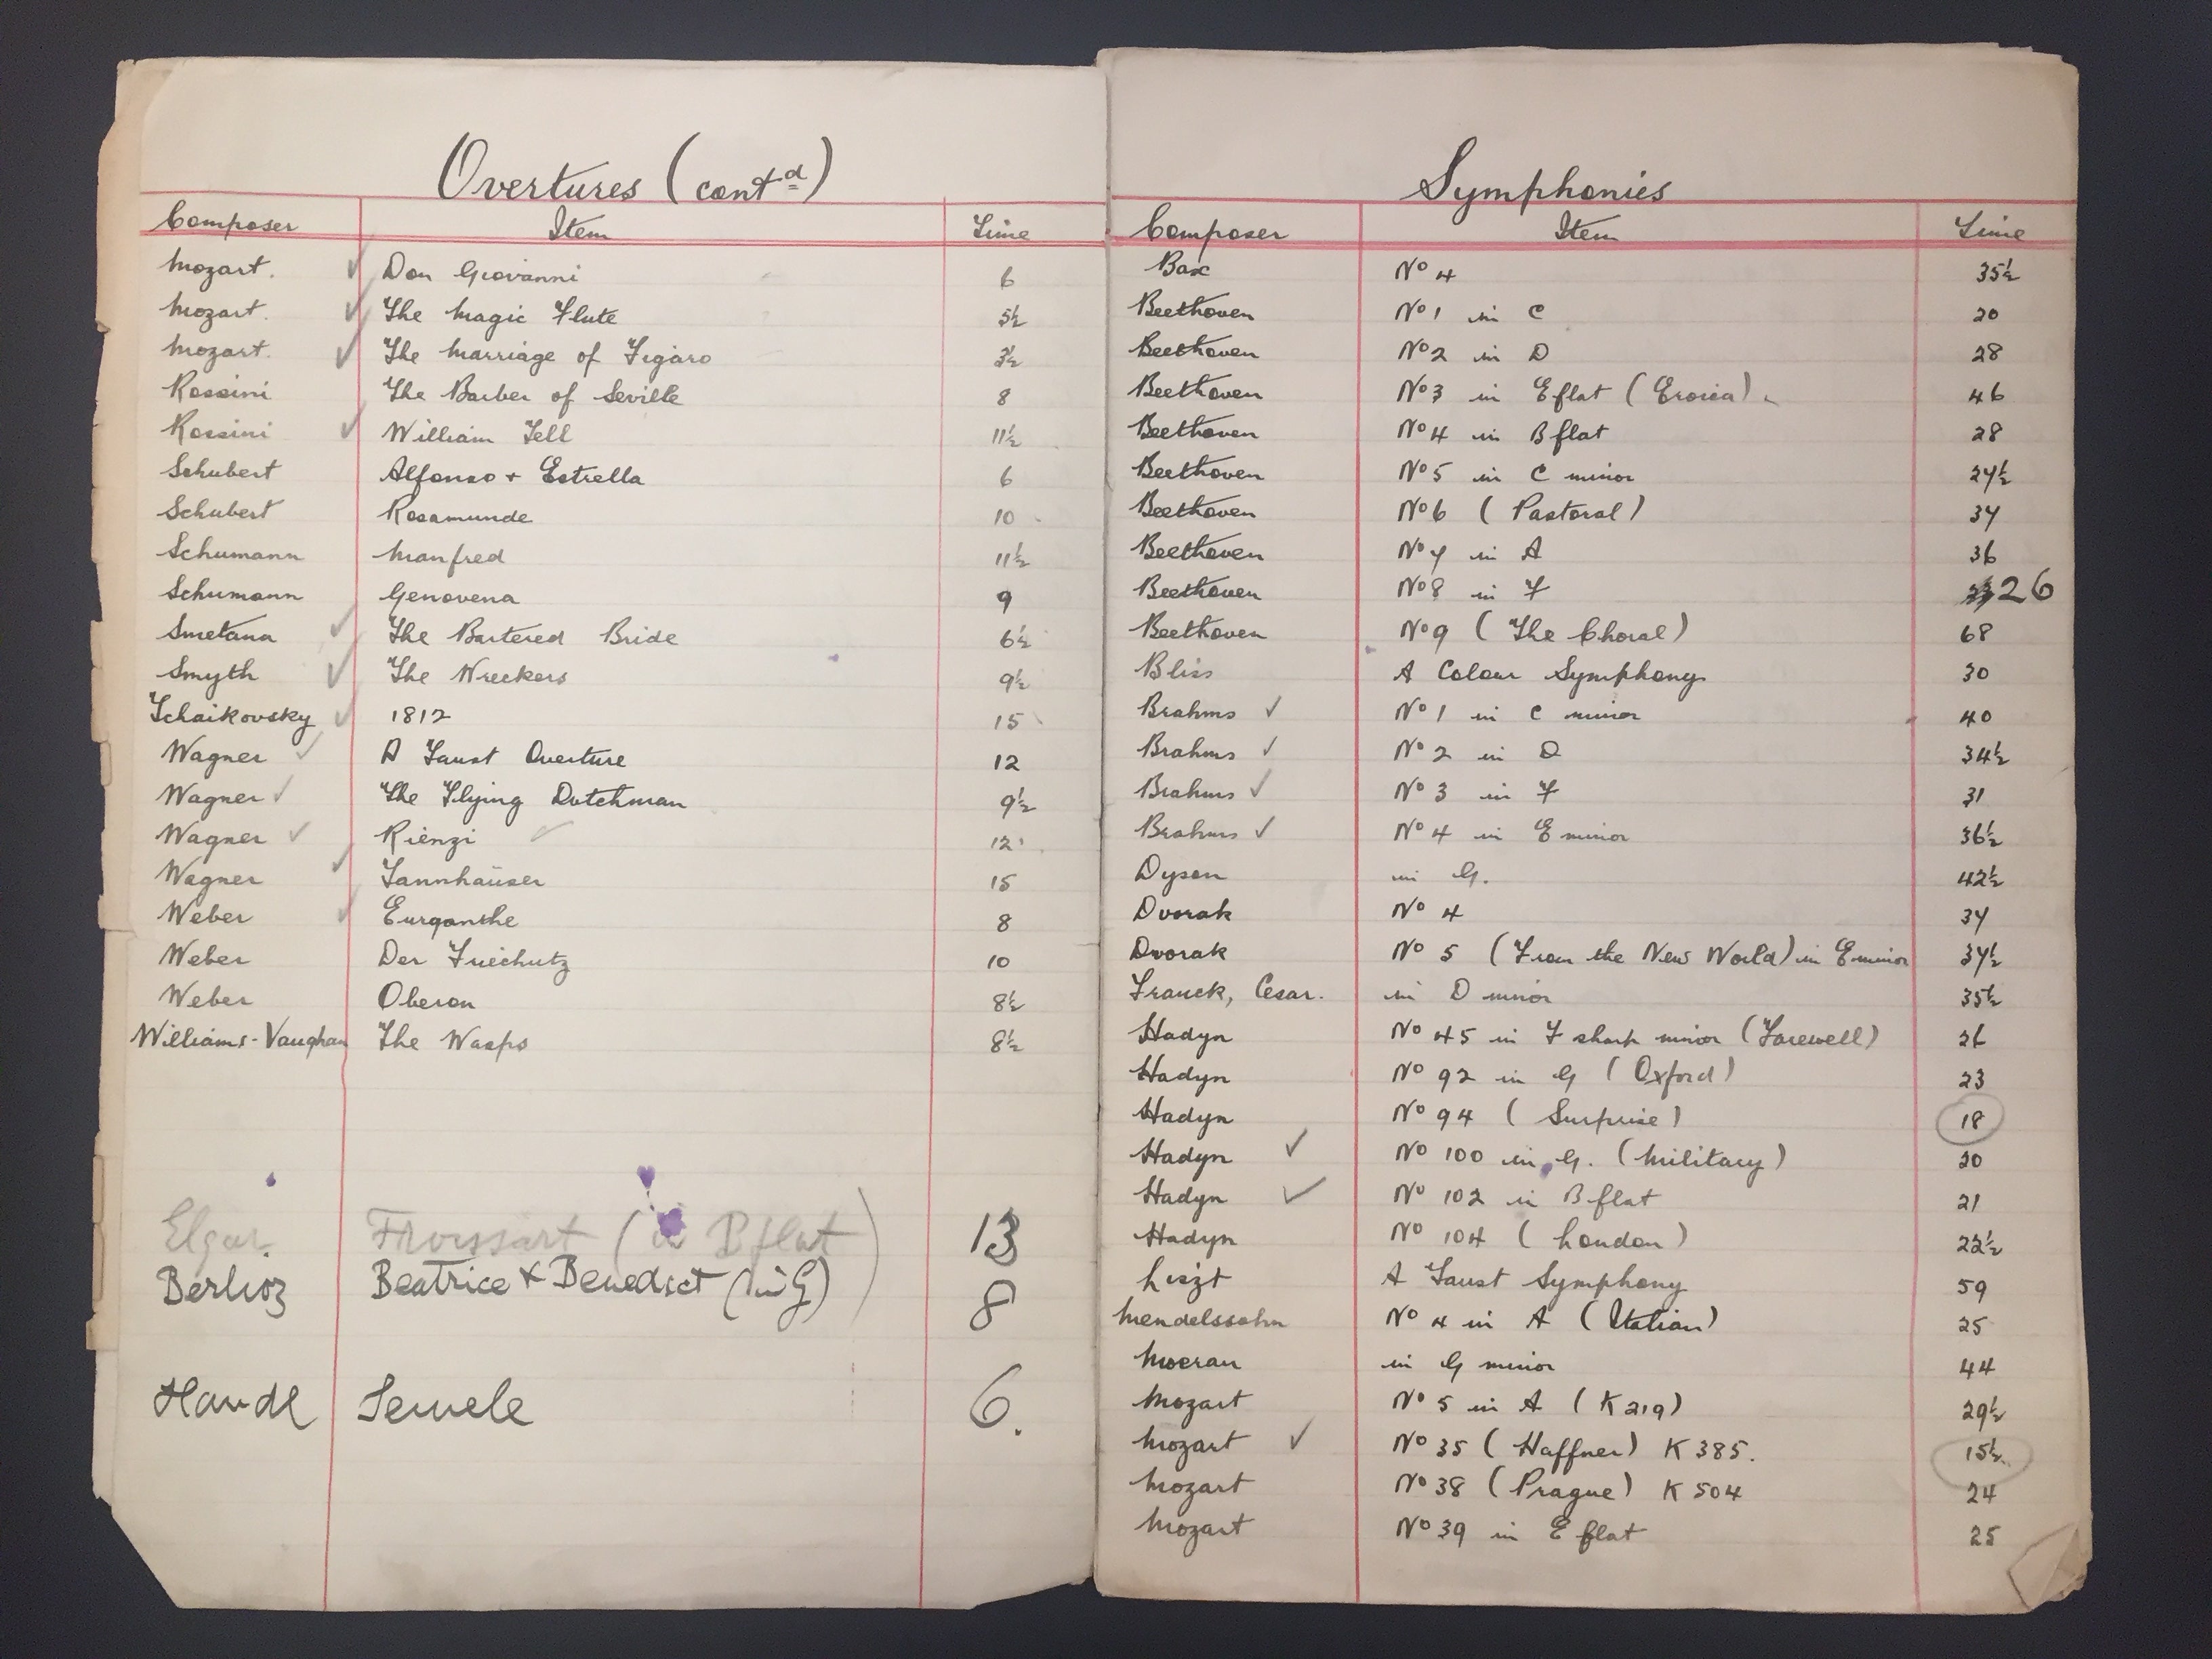 Overtures (contd)
Composer Item Time
Mozart. ✓ Don Giovanni 6
Mozart. ✓ The Magic Flute 5½
Mozart. ✓ The Marriage of Figaro 3½
Rossini The Barber of Seville 8
Rossini ✓ William Tell 11½
Schubert Alfonso + Estrella 6
Schubert Rosamunde 10
Schumann Manfred 11½
Schumann Genovena 9
Smetana ✓ The Bartered Bride 6½
Smyth ✓ The Wreckers 9½
Tchaikovsky ✓ 1812 15
Wagner ✓ A Faust Overture 12
Wagner ✓ The Flying Dutchman 9½
Wagner ✓ Rienzi ✓ 12
Wagner ✓ Tannhaüser 15
Weber ✓ Euryanthe 8
Weber Der Freichutz 10
Weber Oberon 8½
Williams-Vaughan The Wasps 8½
Elgar. Froissart (in B flat) 13
Berlioz Beatrice & Benedict (in G) 8
Handl Semele 6.
Symphonies
Composer Item Time
Bax No 4 35½
Beethoven No 1 in C 20
Beethoven No 2 in D 28
Beethoven No 3 in E flat (Eroica) 46
Beethoven No 4 in B flat 28
Beethoven No 5 in C minor 27½
Beethoven No 6 (Pastoral) 37
Beethoven No 7 in A 36
Beethoven No 8 in F 26
Beethoven No 9 (The Choral) 68
Bliss A Colour Symphony 30
Brahms ✓ No 1 in C minor 40
Brahms ✓ No 2 in D 34½
Brahms ✓ No 3 in F 31
Brahms ✓ No 4 in E minor 36½
Dyson in G. 42½
Dvorak No 4 37
Dvorak No 5 (From the New World) in E minor 37½
Franck, Cesar. in D minor 35½
Hadyn No 45 in F sharp minor (Farewell) 26
Hadyn No 92 in G (Oxford) 23
Hadyn No 94 (Surprise) 18
Hadyn ✓ No 100 in G. (Military) 20
Hadyn ✓ No 102 in B flat 21
Hadyn No 104 (London) 22½
Liszt A Faust Symphony 59
Mendelssohn No 4 in A (Italian) 25
Moeran in G minor 44
Mozart No 5 in A (K 219) 29½
Mozart ✓ No 35 (Haffner) K 385. 15½
Mozart No 38 (Prague) K 504 24
Mozart No 39 in E flat 25